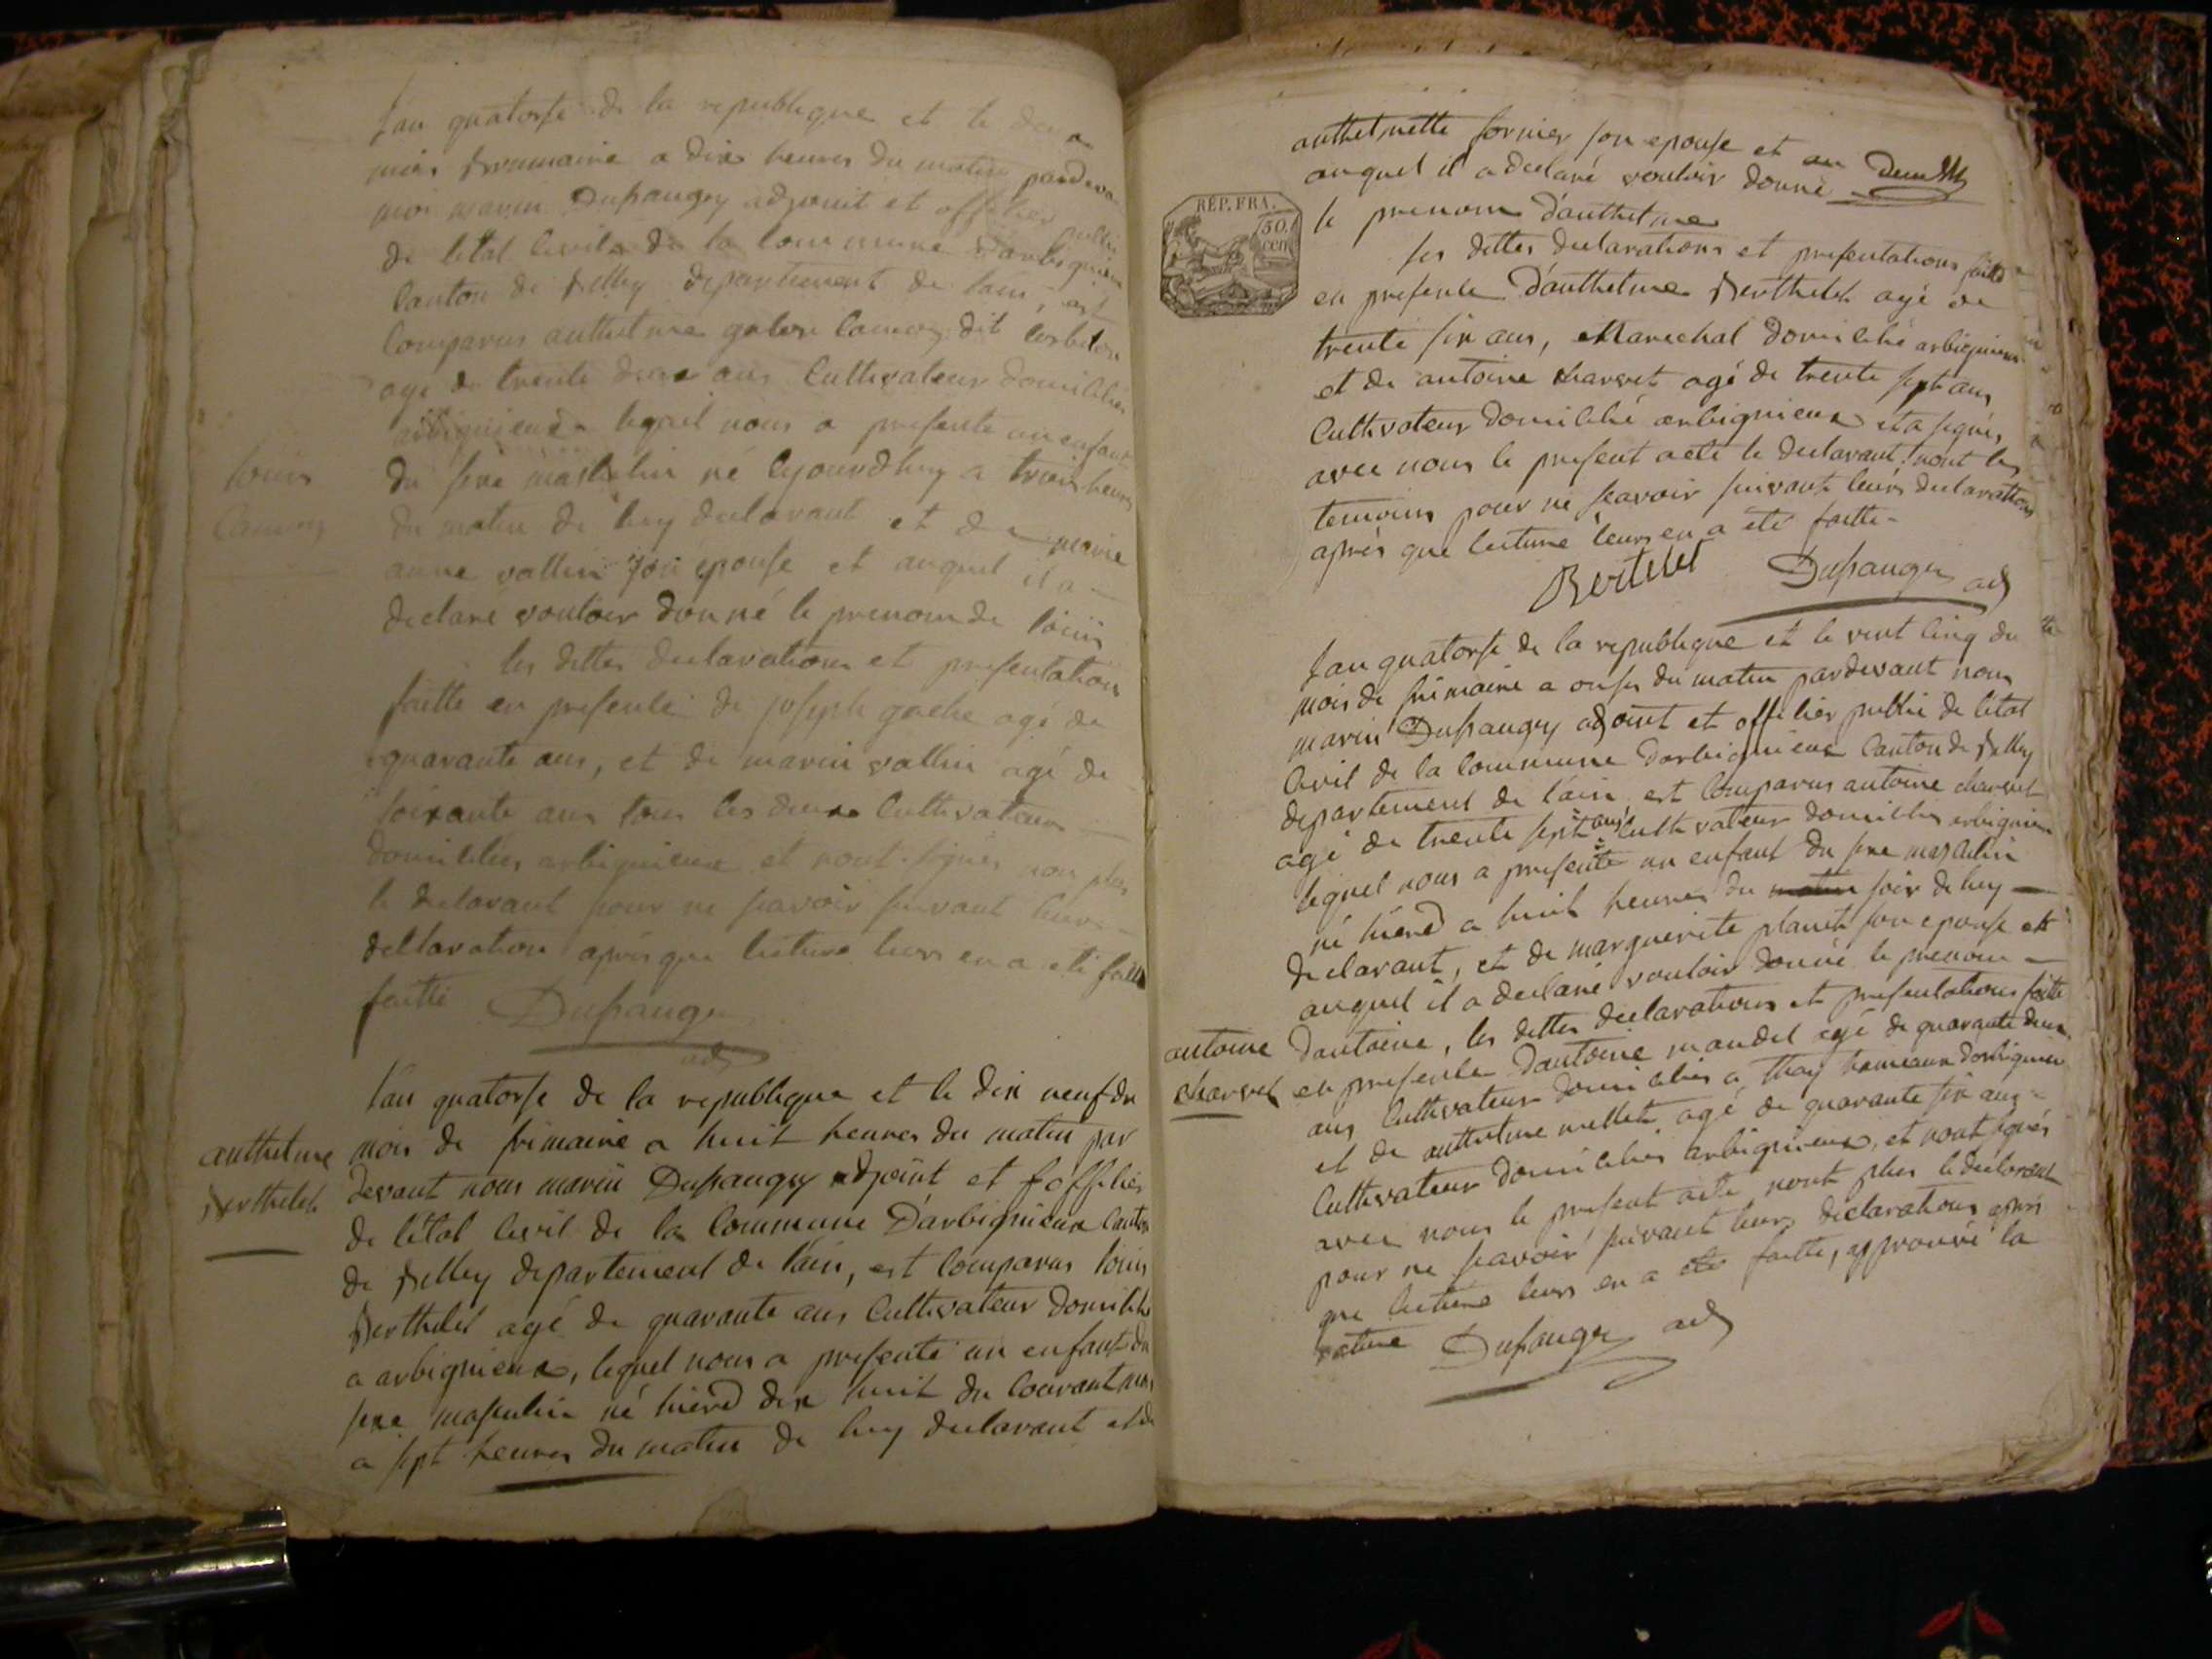 lan quatorse de la republique et le
mois brumaire a dix heures du matin pardeva
moi marin Dupaugey adjouit et officier public
de letat civile de la commune darbignieu
canton de Belley departement de lain, est
comparus anthelme galen camoz dit
agé de trente deux ans cultivateur domicilier
arbignieux lequel nous a presente un enfant
louis
camoz
du sexe masculin né cejourdhuy a trois heures
du matin de luy declarant et de marie
anne vallin son epouse et auquel il a
declaré vouloir donné le prenom de louis
les dittes declarations et presentation
faitte en presence de joseph gache agé de
quarante ans, et de marin vallin agé de
soixante ans tous les deux cultivateur
domicilier arbignieux et nont signés non plus
le declarant pour ne scavoir suivant leur
declaration après que lecture leur en a eté faitte
faitte Dupaugey
adj
lan quatorse de la republique et le dix neuf du
anthelme
Berthelet
mois de frimaire a huit heures du matin par
devant nous marin Dupaugey adjoint et officier
de létat civil de la commune D'arbignieux canton
de Belley departement de lain, est comparus louis
Berthelet agé de quarante ans cultivateur domicilié
a arbignieux, lequel nous a presenté un enfant du
sexe masculin né hierd dix huit du courant mois
a sept heures du matin de luy declarant et de
anthelmette fornier son epouse et au
auquel il a declaré vouloir donné
RÉP. FRA.
50.
cen
le prenom d'anthelme
les dittes declarations et presentations faitte
en presence d'anthelme Berthelet agé de
trente six ans, Marechal domicilié arbignieux
et de antoine charvet agé de trente sept ans
cultivateur domicilié arbignieux et a signés
avec nous le present acte le declarant nont les
temoins pour ne scavoir suivant leurs declarations
après que lecture leurs en a eté faitte
Bertelet Dupaugey adj
lan quatorse de la republique et le vint cinq du
mois de frimaire a onses du matin pardevant nous
marin Dupaugey adjoint et officier public de letat
civil de la commune darbignieux canton de Belley
departement de l'ain, est comparus antoine charvet
agé de trente sept ans cultivateur domicilier arbignieu
lequel nous a presenté un enfant du sexe masculin
né hierd a huit heures du matin soir de luy
declarant, et de marguerite planet son epouse et
auquel il a declaré vouloir donné le prenom
antoine
charvet
dantoine, les dittes declarations et presentations faitte
en presence dantoine mandel agé de quarante deux
ans cultivateur domicilier a thoy hameaux darbignieu
et de anthelme mellet agé de quarante six ans
cultivateur domicilier arbignieux, et nont signés
avec nous le present acte nont plus le declarant
pour ne scavoir suivant leurs declarations après
que lecture leurs en a eté faitte, approuvé la
rature Dupaugey adj